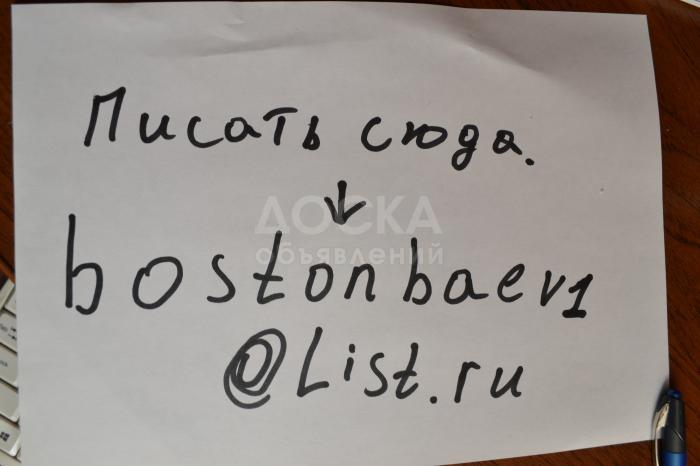 Писать сюда.
↓
ДОСКА
объявлений
bostonbaev1
@List.ru